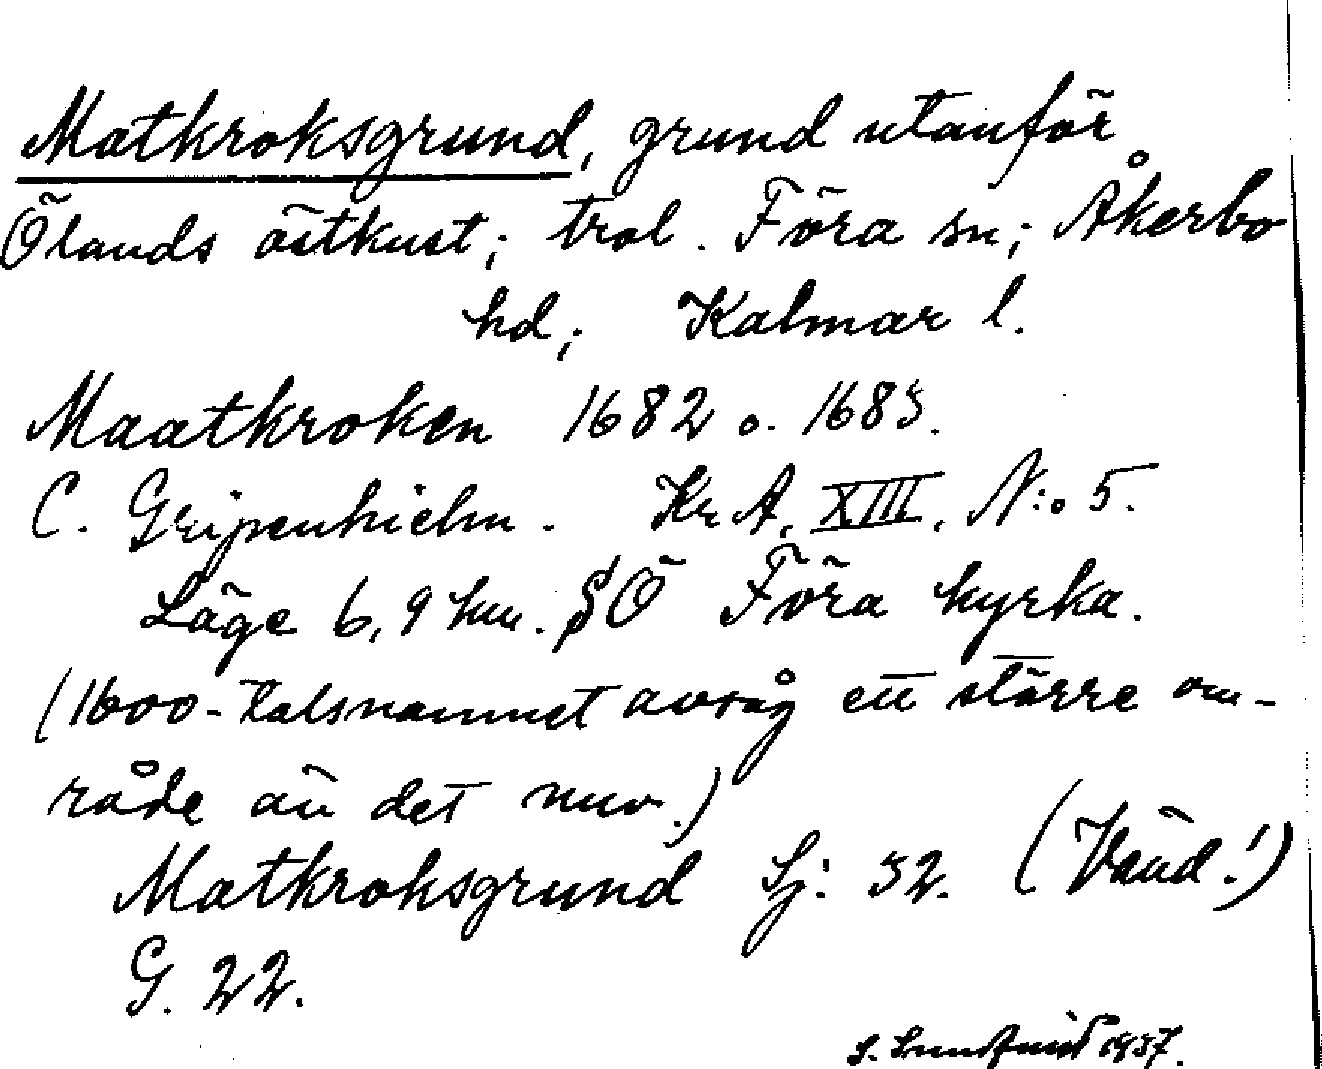 Matkroksgrund, grund utanför
Ölands östkust; trol. Föra sn; Åkerbo
hd; Kalmar l.
Maatkroken 1682 o. 1683.
C. Gripenhielm. Kr. A. XIII. N:o 5.
Läge 6,9 km. SÖ Föra kyrka.
(1600-talsnamnet avsåg ett större om-
råde än det nuv.)
Matkroksgrund Sj: 32. (Vänd!)
G. 22.
1937.